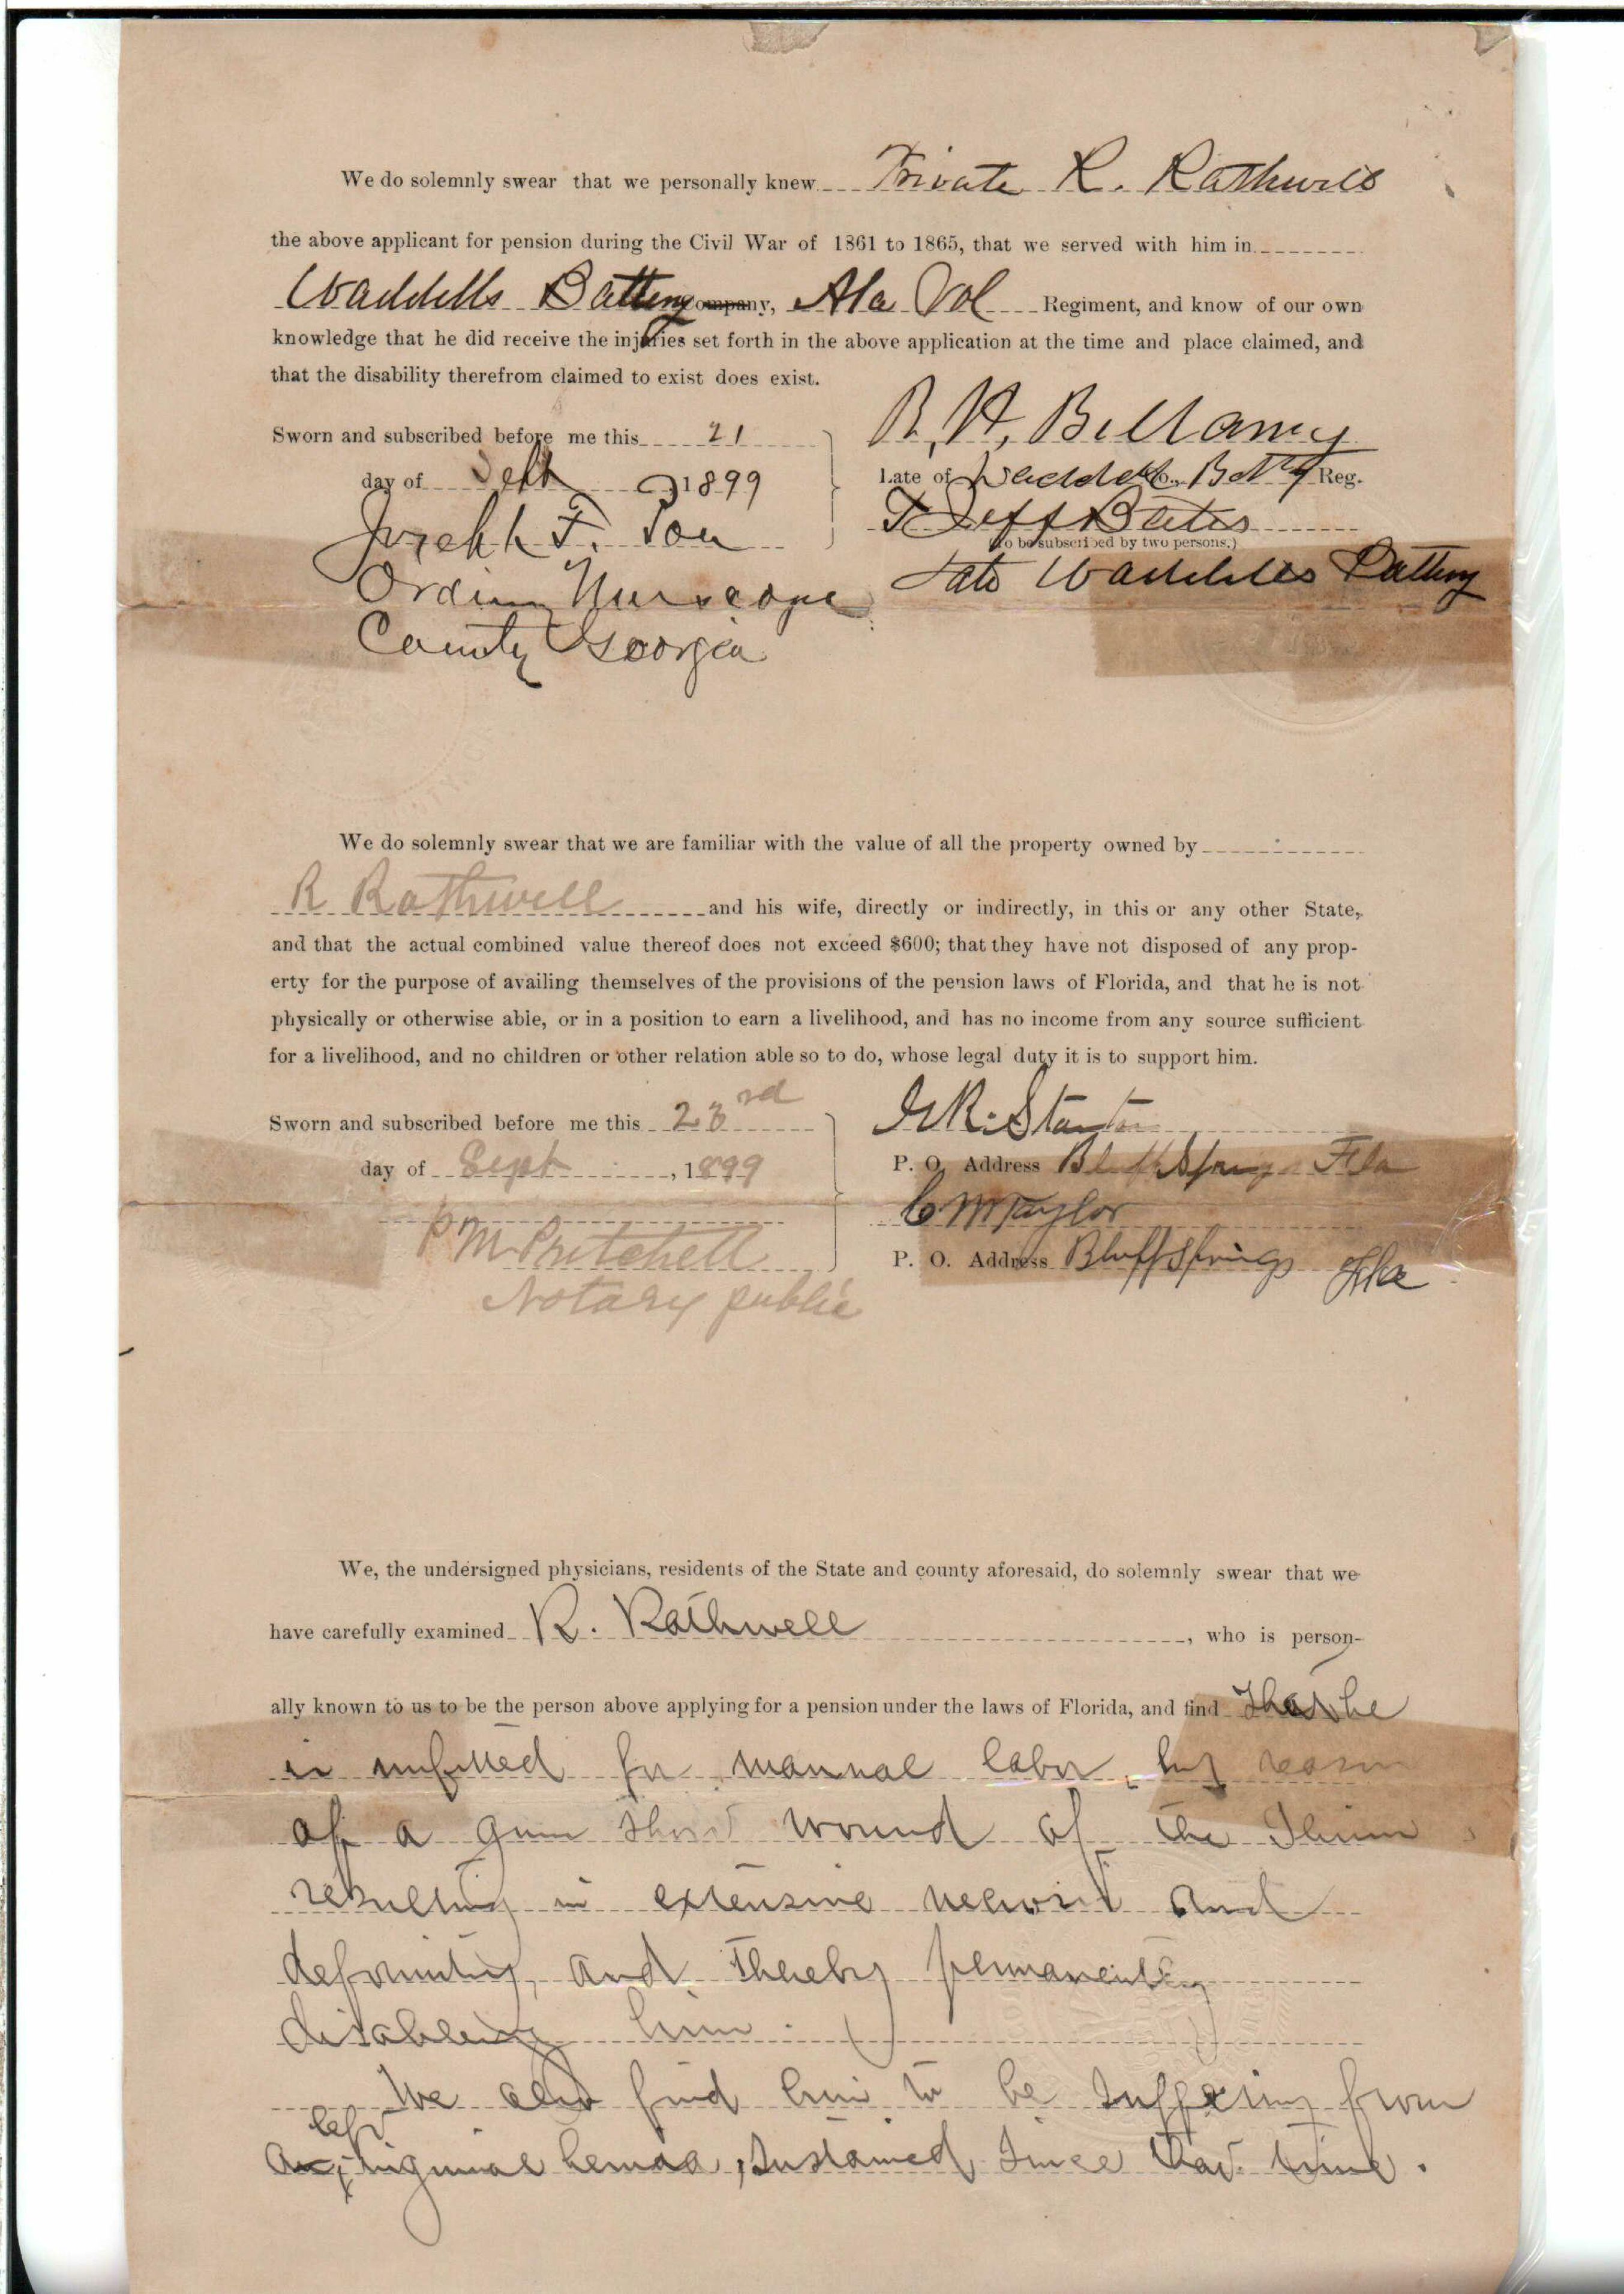 We do solemnly swear that we personally knew Private R. Rathwell
the above applicant for pension during the Civil War of 1861 to 1865, that we served with him in
Waddells Battery Company, Ala Vol Regiment, and know of our own
knowledge that he did receive the injuries set forth in the above application at the time and place claimed, and
that the disability therefrom claimed to exist does exist.
Sworn and subscribed before me this 21
day of Sept 1899
Joseph F. Pou
Ordinary Muscogee
County Georgia
R. H. Bellamy
Late of Waddell Co., Batty Reg.
T Jeff Bates
(To be subscribed by two persons.)
Late Waddells Battery
We do solemnly swear that we are familiar with the value of all the property owned by
R Rathwell and his wife, directly or indirectly, in this or any other State,
and that the actual combined value thereof does not exceed $600; that they have not disposed of any prop-
erty for the purpose of availing themselves of the provisions of the pension laws of Florida, and that he is not
physically or otherwise able, or in a position to earn a livelihood, and has no income from any source sufficient
for a livelihood, and no children or other relation able so to do, whose legal duty it is to support him.
Sworn and subscribed before me this 23rd
day of Sept, 1899
P M Pritchett
Notary public
Stanton
P. O. Address Bluff Springs Fla
C M Taylor
P. O. Address Bluff Springs Fla
We, the undersigned physicians, residents of the State and county aforesaid, do solemnly swear that we
have carefully examined R. Rathwell, who is person-
ally known to us to be the person above applying for a pension under the laws of Florida, and find that he
is unfitted for manual labor, by reason
of a gun shot wound of the
resulting in extensive and
deformity, and thereby permanently
disableing him.
We also find him to be suffering from
left
inguinal hernia, sustained since that time.